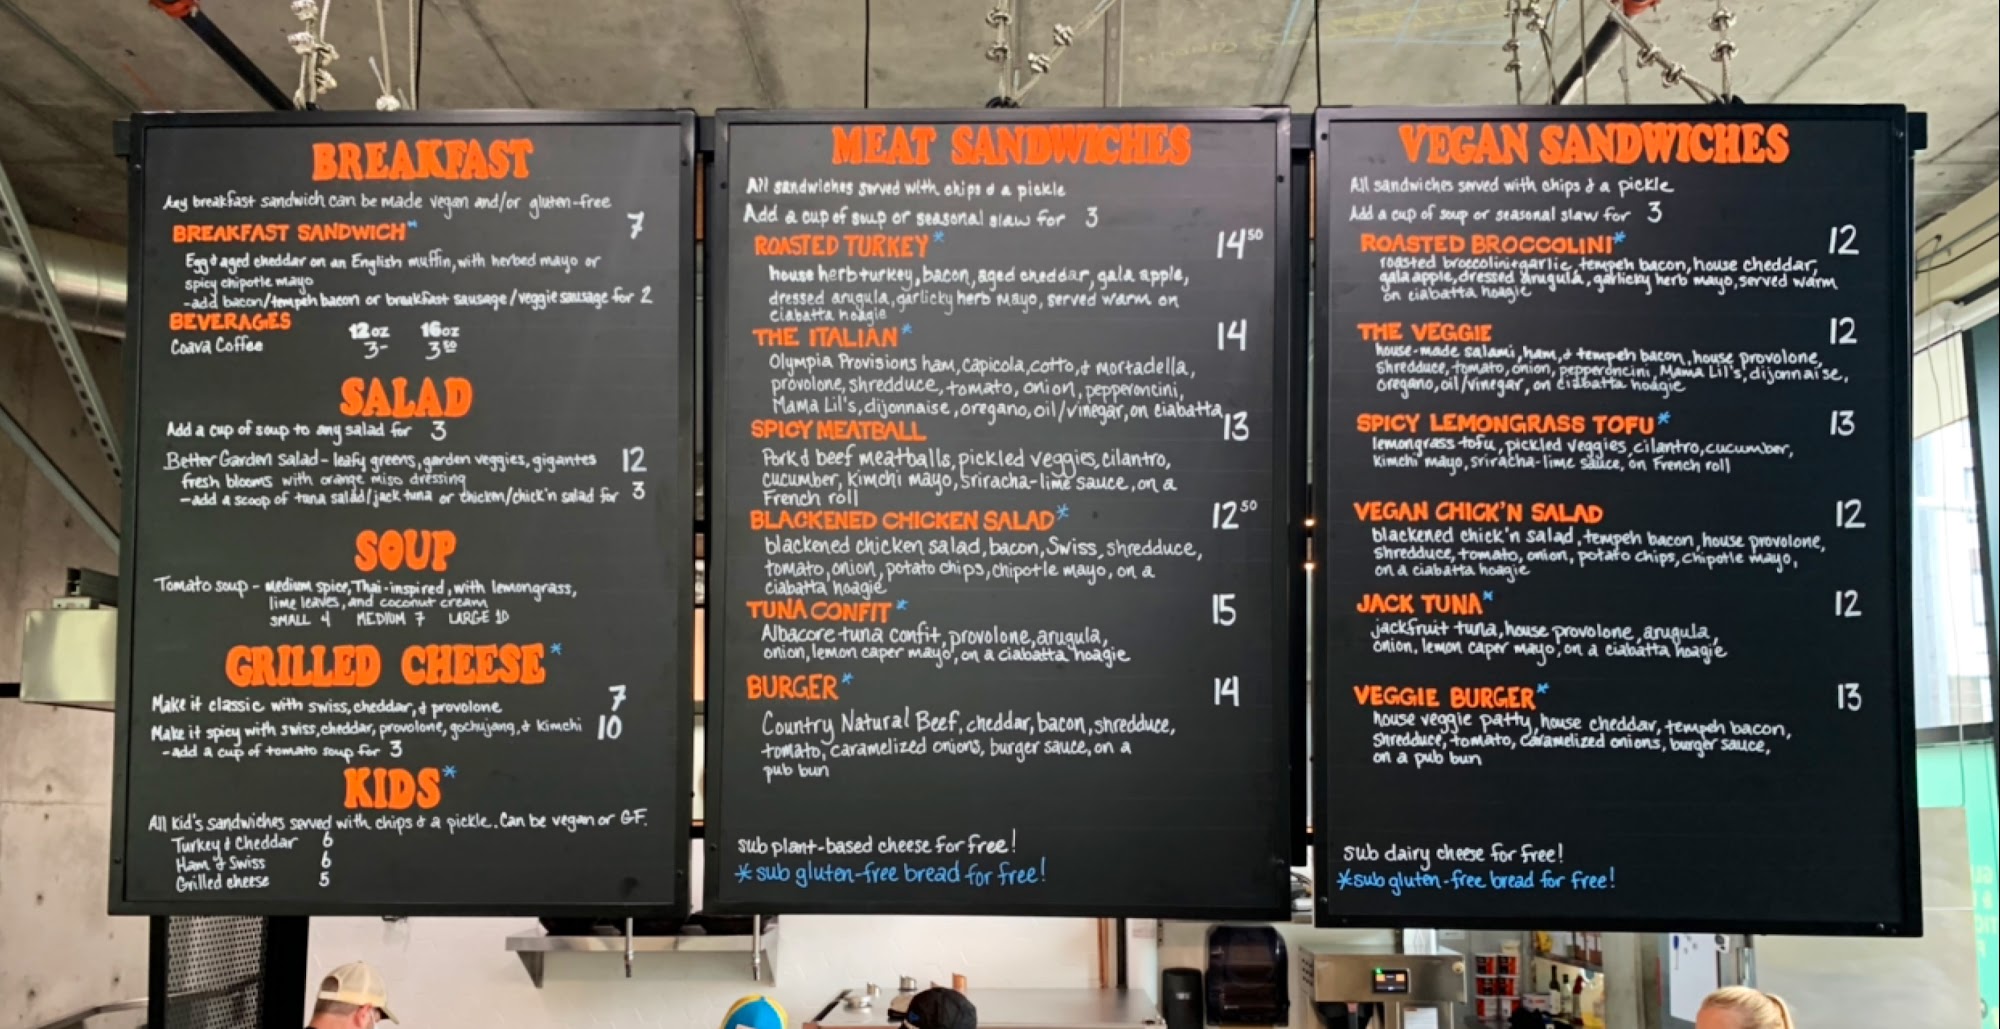 BREAKFAST
Any breakfast sandwich can be made vegan and/or gluten-free
BREAKFAST SANDWICH* 7
Egg & aged cheddar on an English muffin, with herbed mayo or
spicy chipotle mayo
-add bacon/tempeh bacon or breakfast sausage/veggie sausage for 2
BEVERAGES 12oz 16oz
Coava Coffee 3- 3 50
SALAD
Add a cup of soup to any salad for 3
Better Garden salad - leafy greens, garden veggies, gigantes 12
fresh blooms with orange miso dressing
-add a scoop of tuna salad/jack tuna or chicken/chick'n salad for 3
SOUP
Tomato soup - medium spice, Thai-inspired, with lemongrass,
lime leaves, and coconut cream
SMALL 4 MEDIUM 7 LARGE 10
GRILLED CHEESE*
Make it classic with swiss, cheddar, & provolone 7
Make it spicy with swiss, cheddar, provolone, gochujang, & kimchi 10
-add a cup of tomato soup for 3
KIDS*
All kid's sandwiches served with chips & a pickle. Can be vegan or GF.
Turkey & Cheddar 6
Ham & Swiss 6
Grilled cheese 5
MEAT SANDWICHES
All sandwiches served with chips & a pickle
Add a cup of soup or seasonal slaw for 3
ROASTED TURKEY* 14 50
house herb turkey, bacon, aged cheddar, gala apple,
dressed arugula, garlicky herb mayo, served warm on
ciabatta hoagie
THE ITALIAN* 14
Olympia Provisions ham, capicola, cotto, & mortadella,
provolone, shredduce, tomato, onion, pepperoncini,
Mama Lil's, dijonnaise, oregano, oil/vinegar, on ciabatta
SPICY MEATBALL 13
Pork & beef meatballs, pickled veggies, cilantro,
cucumber, kimchi mayo, sriracha-lime sauce, on a
French roll
BLACKENED CHICKEN SALAD* 12 50
blackened chicken salad, bacon, Swiss, shredduce,
tomato, onion, potato chips, chipotle mayo, on a
ciabatta hoagie
TUNA CONFIT* 15
Albacore tuna confit, provolone, arugula,
onion, lemon caper mayo, on a ciabatta hoagie
BURGER* 14
Country Natural Beef, cheddar, bacon, shredduce,
tomato, caramelized onions, burger sauce, on a
pub bun
sub plant-based cheese for free!
* sub gluten-free bread for free!
VEGAN SANDWICHES
All sandwiches served with chips & a pickle
Add a cup of soup or seasonal slaw for 3
ROASTED BROCCOLINI* 12
roasted broccolini+garlic, tempeh bacon, house cheddar,
gala apple, dressed arugula, garlicky herb mayo, served warm
on ciabatta hoagie
THE VEGGIE 12
house-made salami, ham, & tempeh bacon, house provolone,
shredduce, tomato, onion, pepperoncini, Mama Lil's, dijonnaise,
oregano, oil/vinegar, on ciabatta hoagie
SPICY LEMONGRASS TOFU* 13
lemongrass tofu, pickled veggies, cilantro, cucumber,
kimchi mayo, sriracha-lime sauce, on French roll
VEGAN CHICK'N SALAD 12
blackened chick'n salad, tempeh bacon, house provolone,
shredduce, tomato, onion, potato chips, chipotle mayo,
on a ciabatta hoagie
JACK TUNA* 12
jackfruit tuna, house provolone, arugula,
onion, lemon caper mayo, on a ciabatta hoagie
VEGGIE BURGER* 13
house veggie patty, house cheddar, tempeh bacon,
shredduce, tomato, caramelized onions, burger sauce,
on a pub bun
sub dairy cheese for free!
*sub gluten-free bread for free!